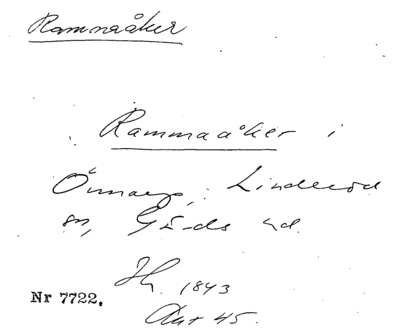 Rammaåker
Rammaåker i
Önnarp, Linderöd
sn, Gärds hd.
Jh. 1843
Akt 45.
Nr 7722.